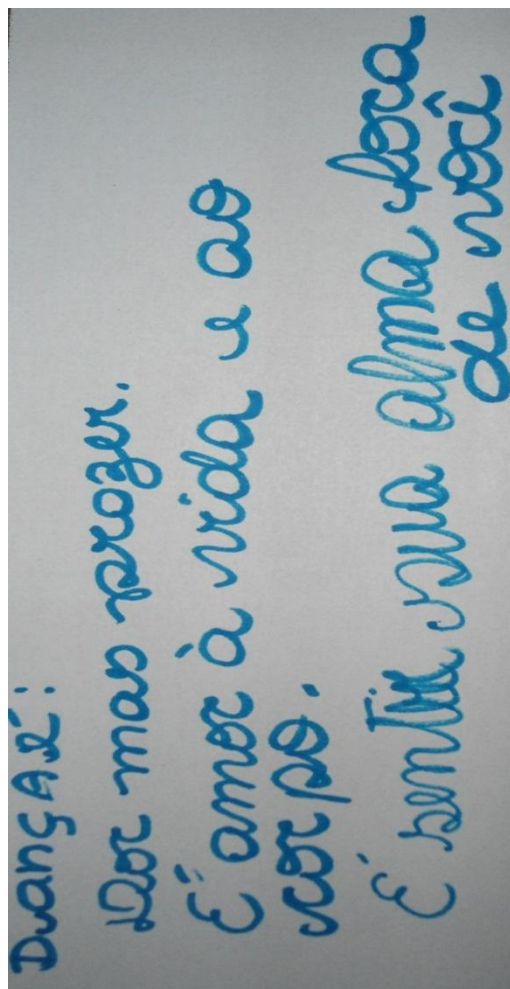 DançAR:
Dor mas prazer.
É amor à vida e ao
corpo.
É sentir sua alma fora
de você